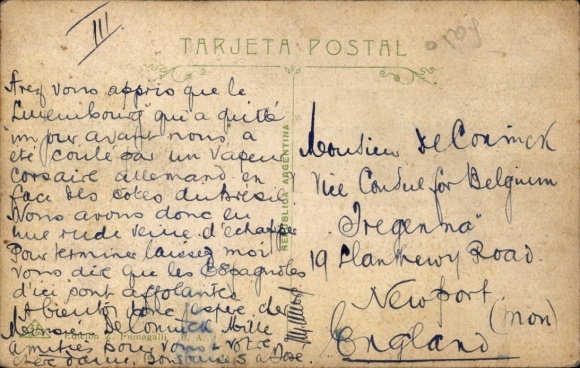 III
TARJETA POSTAL
Avez vous appris que le
Luxembourg" qui a quitté
un jour avant nous a
été coulé par un vapeur
corsaire allemand en
face des côtes du Brésil.
Nous avons donc eu
une rude veine d'échapper
Pour terminer laissez moi
vous dire que les Espagnoles
d'ici sont affolantes
A bientôt donc j'espère
Monsieur De Coninck Mille
amitiés pour vous & votre
chère dame. Bons baisers à José
REPUBLICA ARGENTINA
Edicion Z. Fumagalli B. A.
Monsieur De Coninck
Vice Consul for Belgium
"Tregenna"
19 Llanthewy Road.
Newport
(Mon)
England